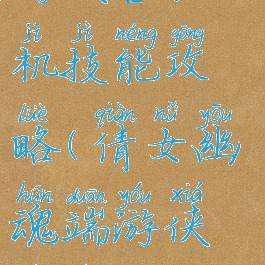 jī jì néng gōng
机技能攻
lüè qiàn nǚ yōu
略(倩女幽
hún duān yóu xiá
魂端游侠